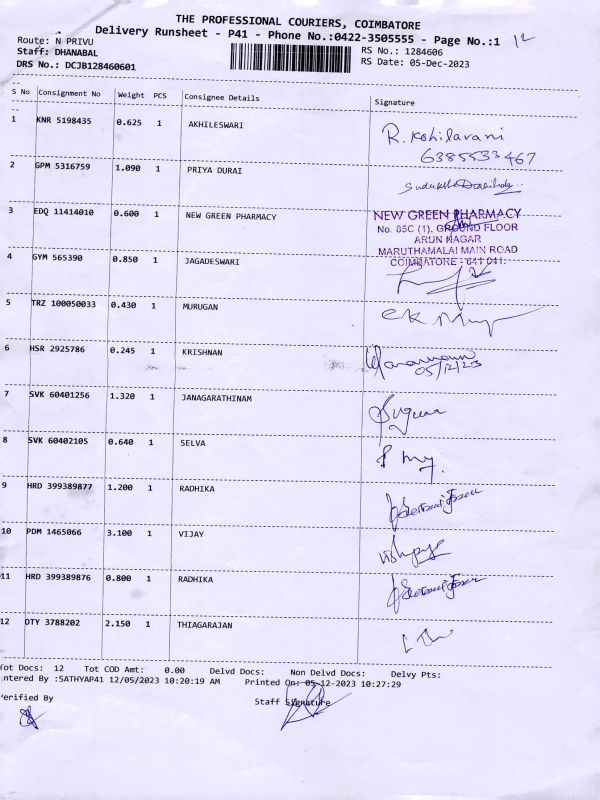 THE PROFESSIONAL COURIERS, COIMBATORE
Delivery Runsheet - P41 - Phone No.:0422-3505555 - Page No.:1 12
Route: N PRIVU
RS No.: 1284606
Staff: DHANABAL
RS Date: 05-Dec-2023
DRS No.: DCJB128460601
S No Consignment No Weight PCS Consignee Details Signature
1 KNR 5198435 0.625 1 AKHILESWARI
6385533467
2 GPM 5316759 1.090 1 PRIYA DURAI
3 EDQ 11414010 0.600 1 NEW GREEN PHARMACY
NEW GREEN PHARMACY
No. 85C (1), GROUND FLOOR
ARUN NAGAR
MARUTHAMALAI MAIN ROAD
COIMBATORE - 641 041.
4 GYM 565390 0.850 1 JAGADESWARI
5 TRZ 100050033 0.430 1 MURUGAN
6 HSR 2925786 0.245 1 KRISHNAN
05/12/23
7 SVK 60401256 1.320 1 JANAGARATHINAM
8 SVK 60402105 0.640 1 SELVA
9 HRD 399389877 1.200 1 RADHIKA
10 PDM 1465066 3.100 1 VIJAY
11 HRD 399389876 0.800 1 RADHIKA
12 DTY 3788202 2.150 1 THIAGARAJAN
Tot Docs: 12 Tot COD Amt: 0.00 Delvd Docs: Non Delvd Docs: Delvy Pts:
ntered By :SATHYAP41 12/05/2023 10:20:19 AM Printed On: 05-12-2023 10:27:29
erified By Staff Signature